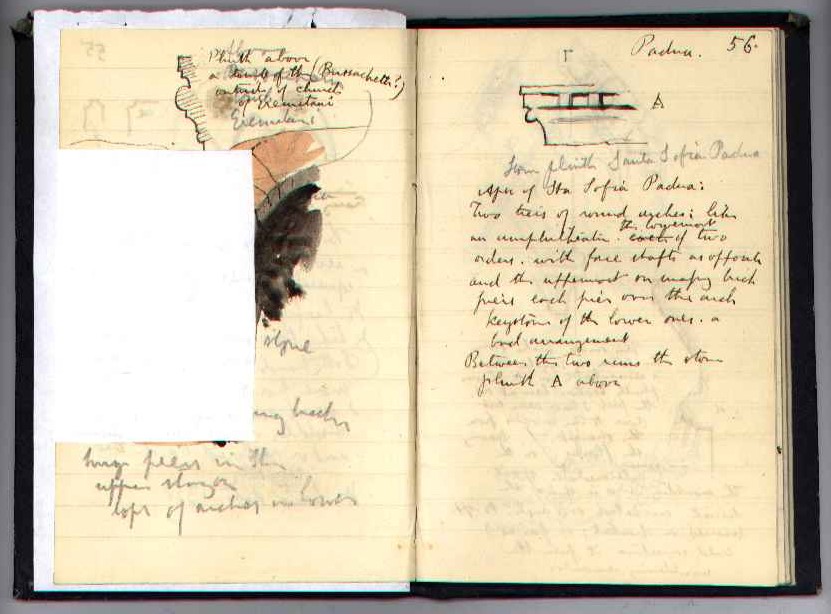 Plinth above
a tomb of the (Bussachetti?)
outside of church
of Eremitani
Eremitani
stone
brick
piers in the
upper
tops of arches in lower
Padua. 56.
A
Stone plinth Santa Sofia Padua
Apse of Sta Sofia Padua:
Two tiers of round arches: like
an amphitheatre. the lowermost of two
orders. with face shafts as opposite
and the uppermost on massy brick
piers each pier over the arch
keystone of the lower ones. a
bad arrangement
Between the two runs the stone
plinth A above